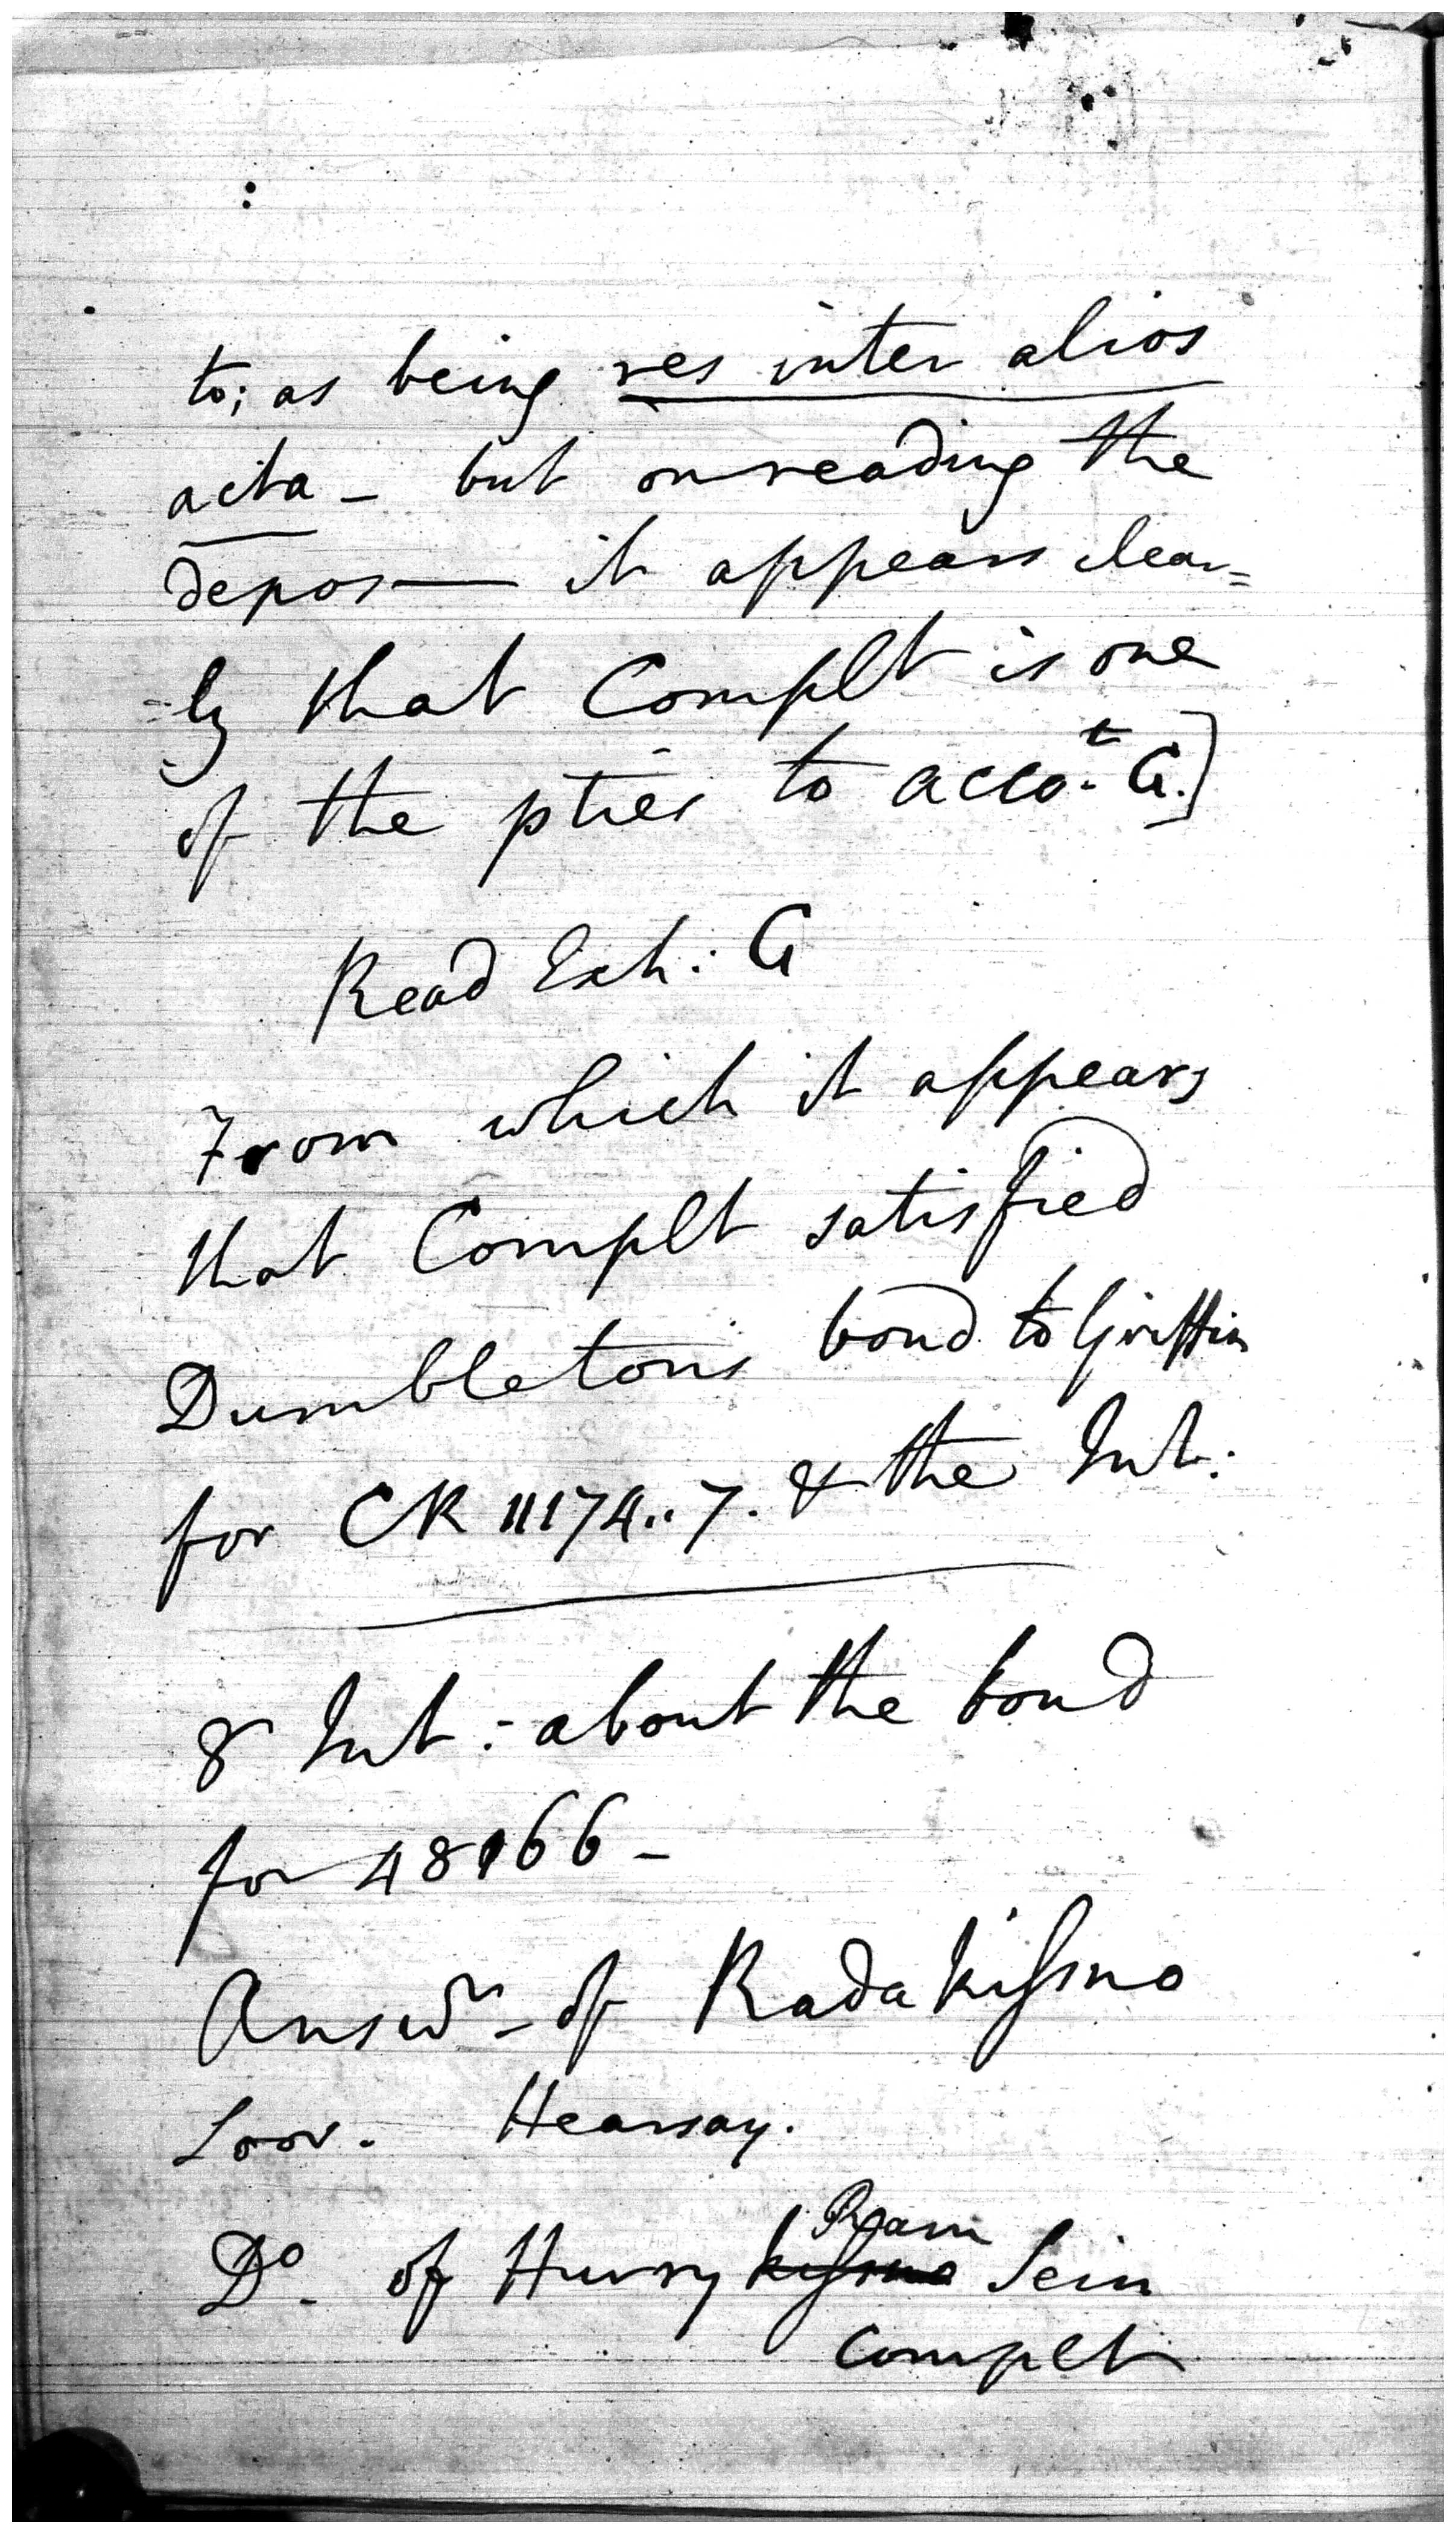 to; as being res inter alios
acta - but on reading the
depos— it appears clear=
=ly that Complt is one
of the pties to acco.t G.]
Read Exh: G
From which it appears
that Complt satisfied
Dumbletons bond to Griffin
for CR 11174..7. & the Int:
8 Int: - about the bond
for 48166 -
Answr - of Radakissno
Loor. Hearsay.
Do. of Hurry Ram Sein
Complt